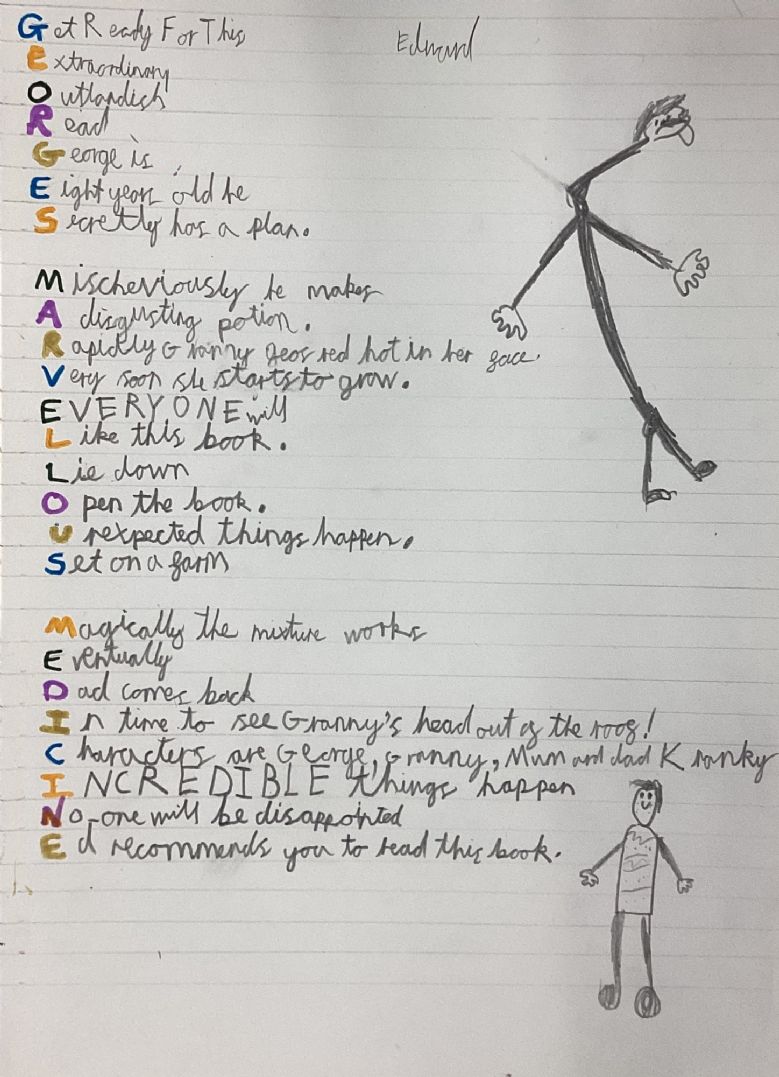 Get Ready For This
Edward
Extraordinary
Outlandish
Read
George is
Eight years old he
Secretly has a plan.
Mischeviously he makes
A disgusting potion.
Rapidly Granny goes red hot in her face.
Very soon she starts to grow.
EVERYONE will
Like this book.
Lie down
Open the book.
Unexpected things happen.
Set on a farm
Magically the mixture works
Eventually
Dad comes back
In time to see Granny's head out of the roof!
Characters are George, Granny, Mum and dad Kranky
INCREDIBLE things happen
No-one will be disappointed
Ed recommends you to read this book.